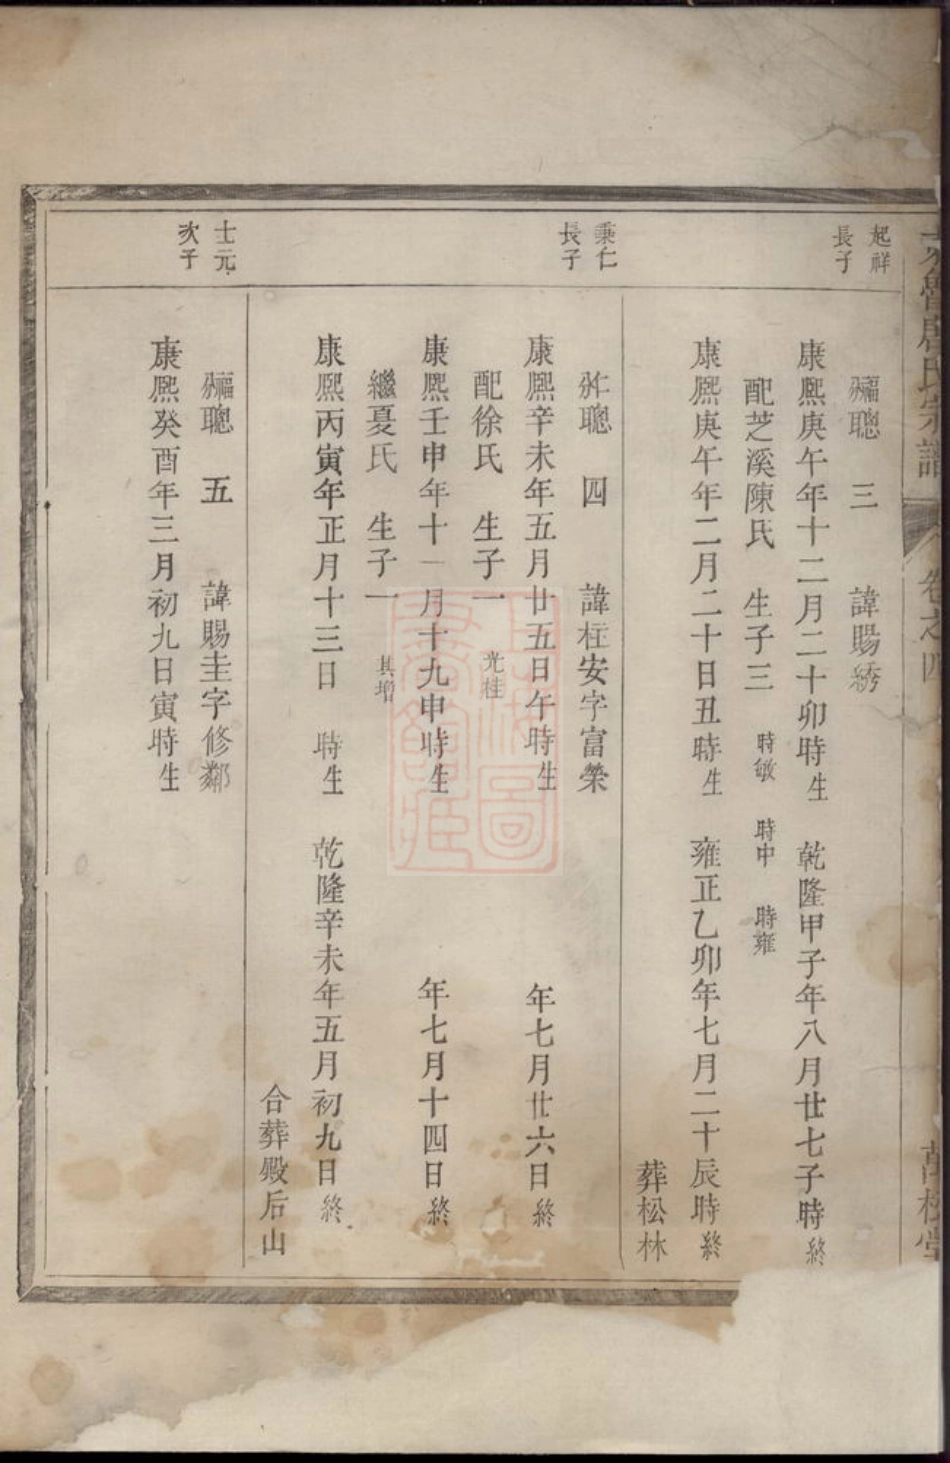 起祥
長子
聰 三 諱賜綉
康熙庚午年十二月二十卯時生 乾隆甲子年八月廿七子時終
配芝溪陳氏 生子三 時敏 時中 時雍
康熙庚午年二月二十日丑時生 雍正乙卯年七月二十辰時終
葬松林
秉仁
長子
聰 四 諱柱安字富榮
康熙辛未年五月廿五日午時生 年七月廿六日終
配徐氏 生子一 光桂
康熙壬申年十一月十九申時生 年七月十四日終
繼夏氏 生子一 其增
康熙丙寅年正月十三日 時生 乾隆辛未年五月初九日終
合葬殿后山
士元
次子
聰 五 諱賜圭字修鄰
康熙癸酉年三月初九日寅時生
氏宗譜 卷之四 萬松堂
上海圖書館藏